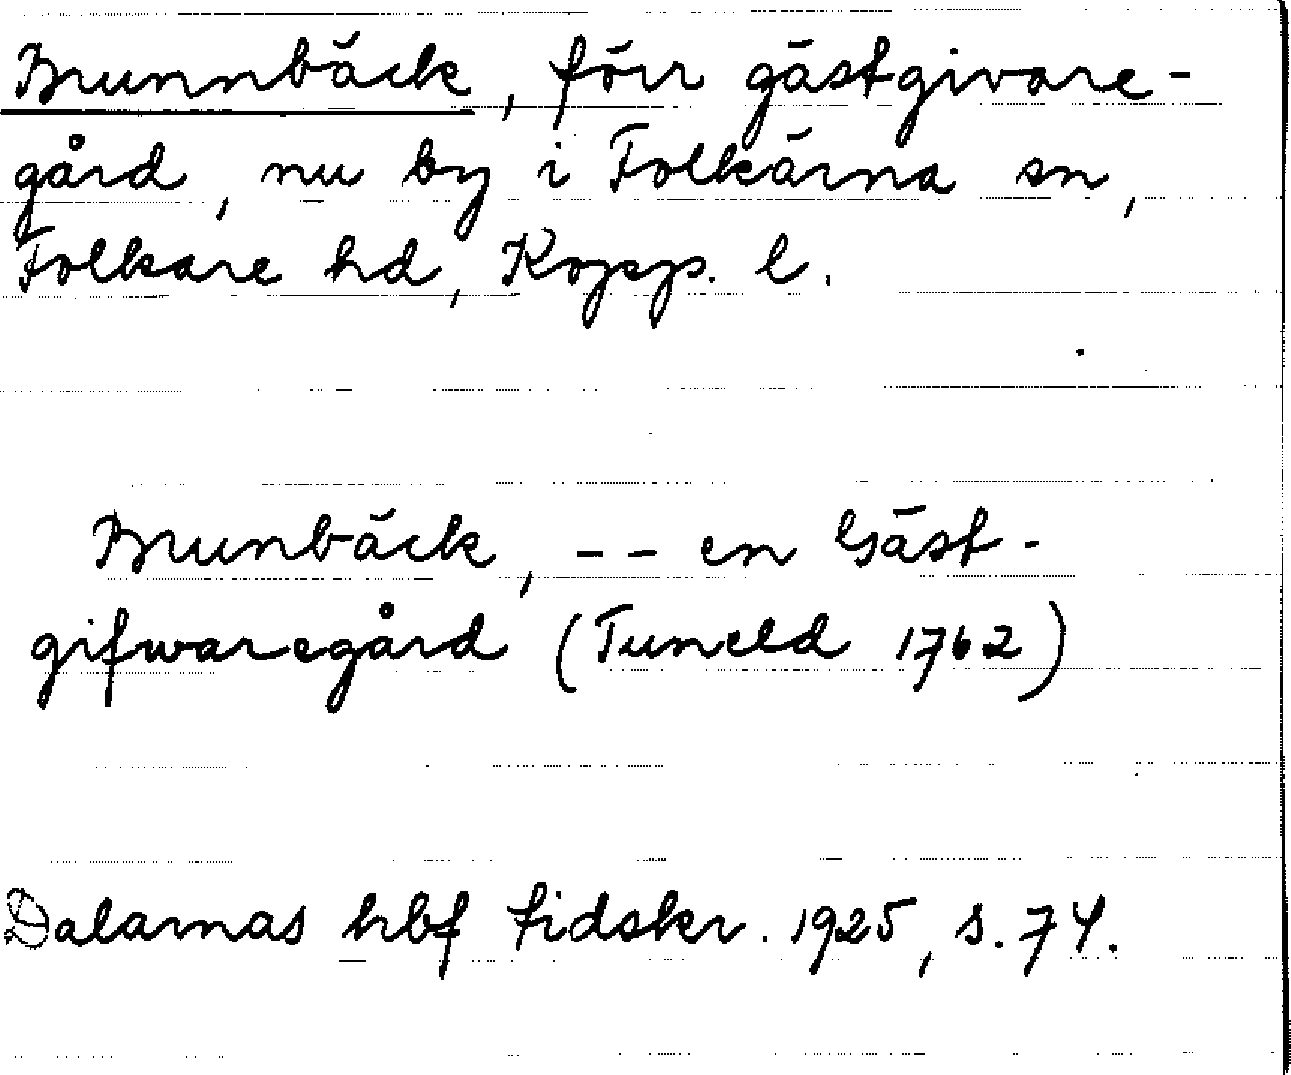 Brunnbäck, förr gästgivare-
gård, nu by i Folkärna sn,
Folkare hd, Kopp. l.
Brunbäck, -- en Gäst-
gifwaregård (Tuneld 1762)
Dalarnas hbf tidskr. 1925, s. 74.